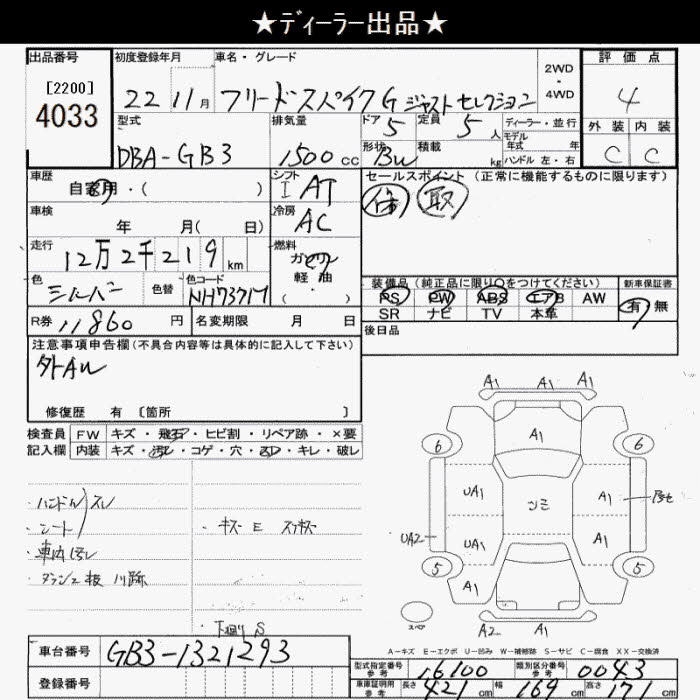 ★ディーラー出品★
出品番号
[2200]
4033
初度登録年月
22 11月
車名・グレード
フリードスパイクG ジャストセレクション
2WD
・
4WD
評価点
4
外装 内装
C C
型式
DBA-GB3
排気量
1500cc
ドア 5
形状 BW
定員 5人
積載 kg
ディーラー・並行
モデル
年式 年
ハンドル 左・右
車歴
自家用・( )
シフト
I AT
セールスポイント(正常に機能するものに限ります)
保 取
車検
年 月( 日)
冷房
AC
走行
12万2千219km
燃料
ガソリン
軽・油
( ・ )
色
シルバー
色替
色コード
NH737M
装備品(純正品に限り○をつけてください)
PS PW ABS エアB AW
SR ナビ TV 本革
新車保証書
有 無
R券 11860円
名変期限 月 日
後日品
注意事項申告欄(不具合内容等は具体的に記入して下さい)
外AW
修復歴 有 [箇所 ]
検査員
記入欄
FW キズ・飛石・ヒビ割・リペア跡・×要
内装 キズ・汚レ・コゲ・穴・スレ・キレ・破レ
・ハンドル スレ
・シート
・車内汚レ
・ダッシュ板 ハリ跡
・キズ E スリキズ
下廻り S
A1 A1 A1
A1
6 6
UA1 A1
UA2
UA1 A1
5 5
A1 A1
A2 A1
スペア
A-キズ E-エクボ U-凹み W-補修跡 S-サビ C-腐食 XX-交換済
車台番号
GB3-1321293
登録番号
型式指定番号
参考
16100
類別区分番号
参考
0043
車庫証明用
参考
長さ 421cm 幅 169cm 高さ 171cm